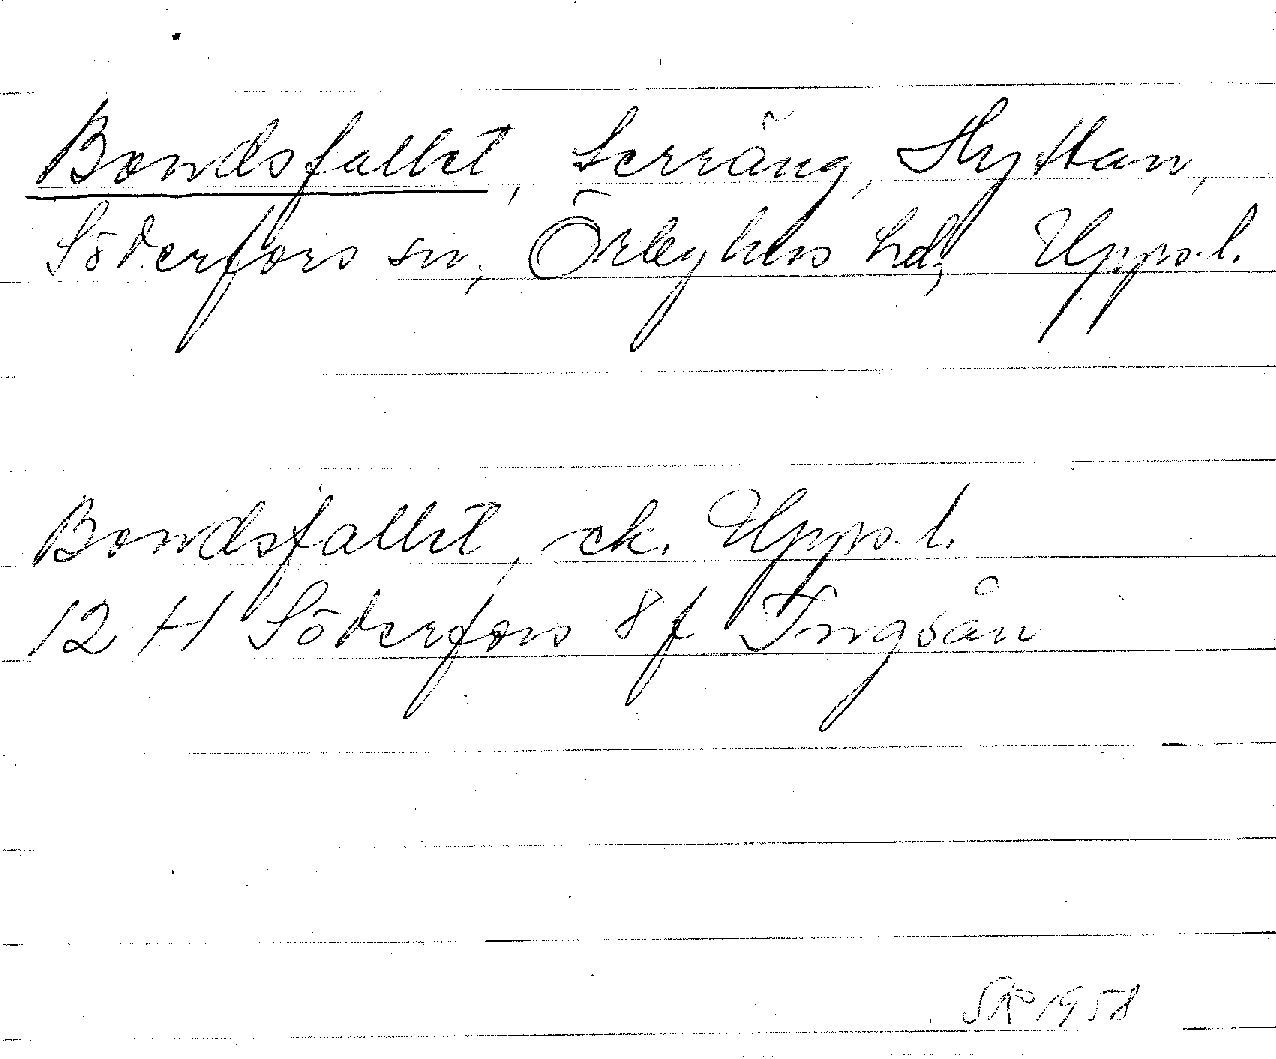 Bondsfallet, Lerräng, Hyttan,
Söderfors sn, Örbyhus hd, Upps.l.
Bondsfallet, ek. Upps.l.
12 H Söderfors 8f Ingsån
1958